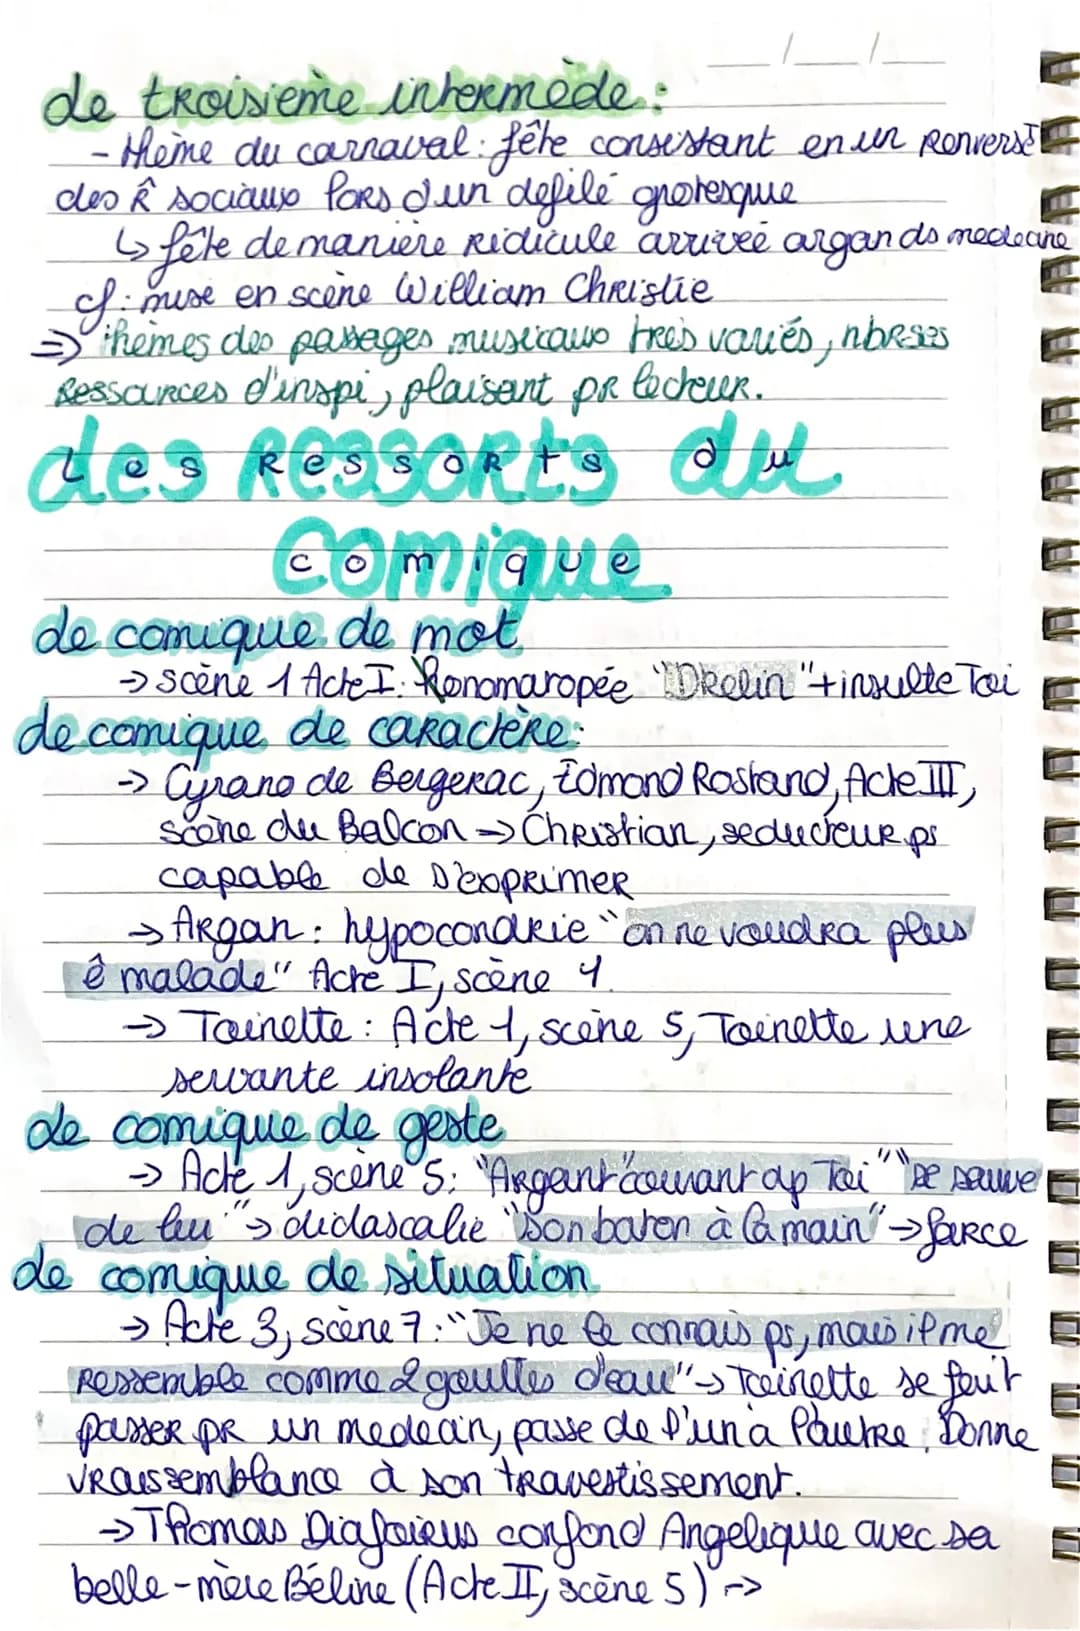 __/__/__
Le troisième intermède :
- thème du carnaval : fête consistant en un renverst
des R̂ sociaux lors d'un defilé grotesque
↳ fête de manière ridicule arrivée argan ds medecine
cf : mise en scène William Christie
=> thèmes des passages musicaux très variés, nbrses
Ressources d'inspi, plaisant pr lecteur.
Les Ressorts du
comique
Le comique de mot
→ scène 1 Acte I : Honomaropée "Drelin" + insulte Toi
Le comique de caractère :
→ Cyrano de Bergerac, Edmond Rostand, Acte III,
scène du Balcon → Christian, seducteur ps
capable de s'exprimer
→ Argan : hypocondrie "on ne voudra plus
ê malade" Acte I, scène 4.
→ Toinette : Acte 1, scène 5, Toinette une
servante insolante
Le comique de geste
→ Acte 1, scène 5 : "Argant" courant ap Toi" "se sauve
de lui" → didascalie "son baton à la main" → farce
Le comique de situation
→ Acte 3, scène 7 : "Je ne le connais ps, mais il me
ressemble comme 2 gouttes d'eau" → Toinette se fait
passer pr un medecin, passe de l'un à l'autre. Donne
vraissemblance à son travestissement.
→ Thomas Diafoirus confond Angelique avec sa
belle-mère Béline (Acte II, scène 5) →